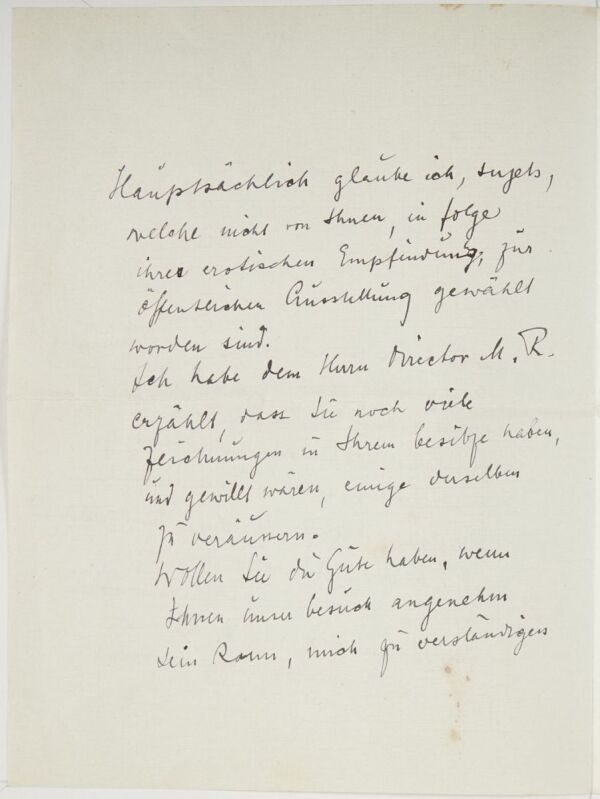 Hauptsächlich glaube ich, sujets,
welche nicht von Ihnen, in folge
ihrer erotischen Empfindung, zur
öffentlichen Ausstellung gewählt
worden sind.
Ich habe dem Herrn Director M. R.
erzählt, dass Sie noch viele
Zeichnungen in Ihrem besitze haben,
und gewillt wären, einige derselben
zu veräussern.
Wollen Sie die Güte haben, wenn
Ihnen unser besuch angenehm
sein kann, mich zu verständigen